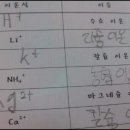 이온식 이름
H⁺ 수소 이온
Li⁺ 리튬 이온
k⁺ 칼륨 이온
NH₄⁺ 암모늄 이온
g²⁺ 마그네슘
Ca²⁺ 칼슘